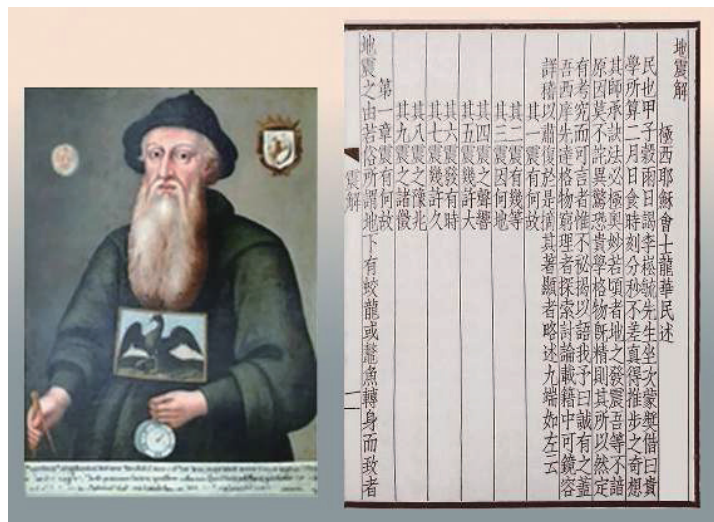 地震解
極西耶穌會士龍華民述
民也甲子穀雨日謁李崧毓先生坐次蒙奬借曰貴
學所算二月日食時刻分秒不差真得推步之奇想
其師承訣法必極奧妙若頃者地之發震吾等不諳
原因莫不詫異驚恐貴學格物旣精則其所以然定
有考究而可言者惟不祕揭以語我予曰誠有之蓋
吾西庠先達格物窮理者探索討論載籍中可鏡容
詳稽以肅復於是摘其著顯者略述九端如左云
其一震有何故
其二震有幾等
其三震因何地
其四震之聲響
其五震幾許大
其六震發有時
其七震幾許久
其八震之豫兆
其九震之諸徵
第一章震有何故
地震之由若俗所謂地下有蛟龍或鼇魚轉身而致者
震解
一